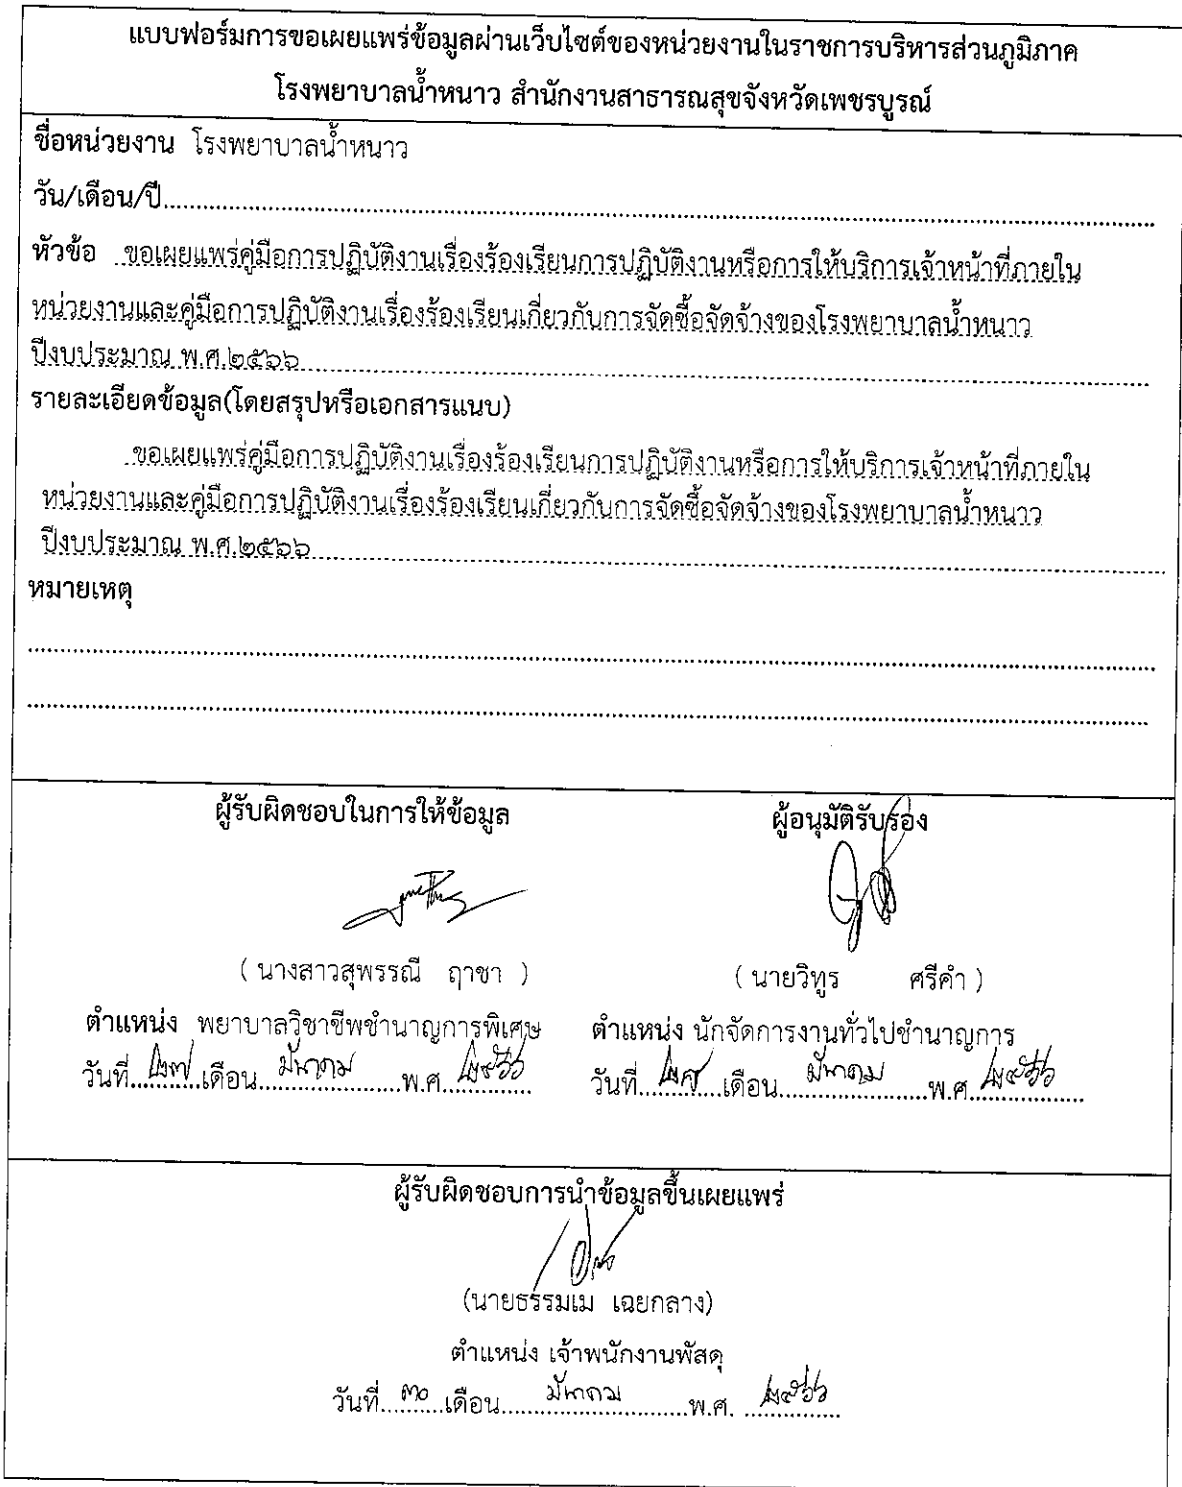 แบบฟอร์มการขอเผยแพร่ข้อมูลผ่านเว็บไซต์ของหน่วยงานในราชการบริหารส่วนภูมิภาค
โรงพยาบาลน้ำหนาว สำนักงานสาธารณสุขจังหวัดเพชรบูรณ์
ชื่อหน่วยงาน โรงพยาบาลน้ำหนาว
วัน/เดือน/ปี
หัวข้อ ขอเผยแพร่คู่มือการปฏิบัติงานเรื่องร้องเรียนการปฏิบัติงานหรือการให้บริการเจ้าหน้าที่ภายใน
หน่วยงานและคู่มือการปฏิบัติงานเรื่องร้องเรียนเกี่ยวกับการจัดซื้อจัดจ้างของโรงพยาบาลน้ำหนาว
ปีงบประมาณ พ.ศ.๒๕๖๖
รายละเอียดข้อมูล(โดยสรุปหรือเอกสารแนบ)
ขอเผยแพร่คู่มือการปฏิบัติงานเรื่องร้องเรียนการปฏิบัติงานหรือการให้บริการเจ้าหน้าที่ภายใน
หน่วยงานและคู่มือการปฏิบัติงานเรื่องร้องเรียนเกี่ยวกับการจัดซื้อจัดจ้างของโรงพยาบาลน้ำหนาว
ปีงบประมาณ พ.ศ.๒๕๖๖
หมายเหตุ
ผู้รับผิดชอบในการให้ข้อมูล ผู้อนุมัติรับรอง
( นางสาวสุพรรณี ฤาชา ) ( นายวิทูร ศรีคำ )
ตำแหน่ง พยาบาลวิชาชีพชำนาญการพิเศษ ตำแหน่ง นักจัดการงานทั่วไปชำนาญการ
วันที่ ๒๗ เดือน มีนาคม พ.ศ. ๒๕๖๖ วันที่ เดือน มีนาคม พ.ศ. ๒๕๖๖
ผู้รับผิดชอบการนำข้อมูลขึ้นเผยแพร่
(นายธรรมเม เฉยกลาง)
ตำแหน่ง เจ้าพนักงานพัสดุ
วันที่ ๓๐ เดือน มีนาคม พ.ศ. ๒๕๖๖